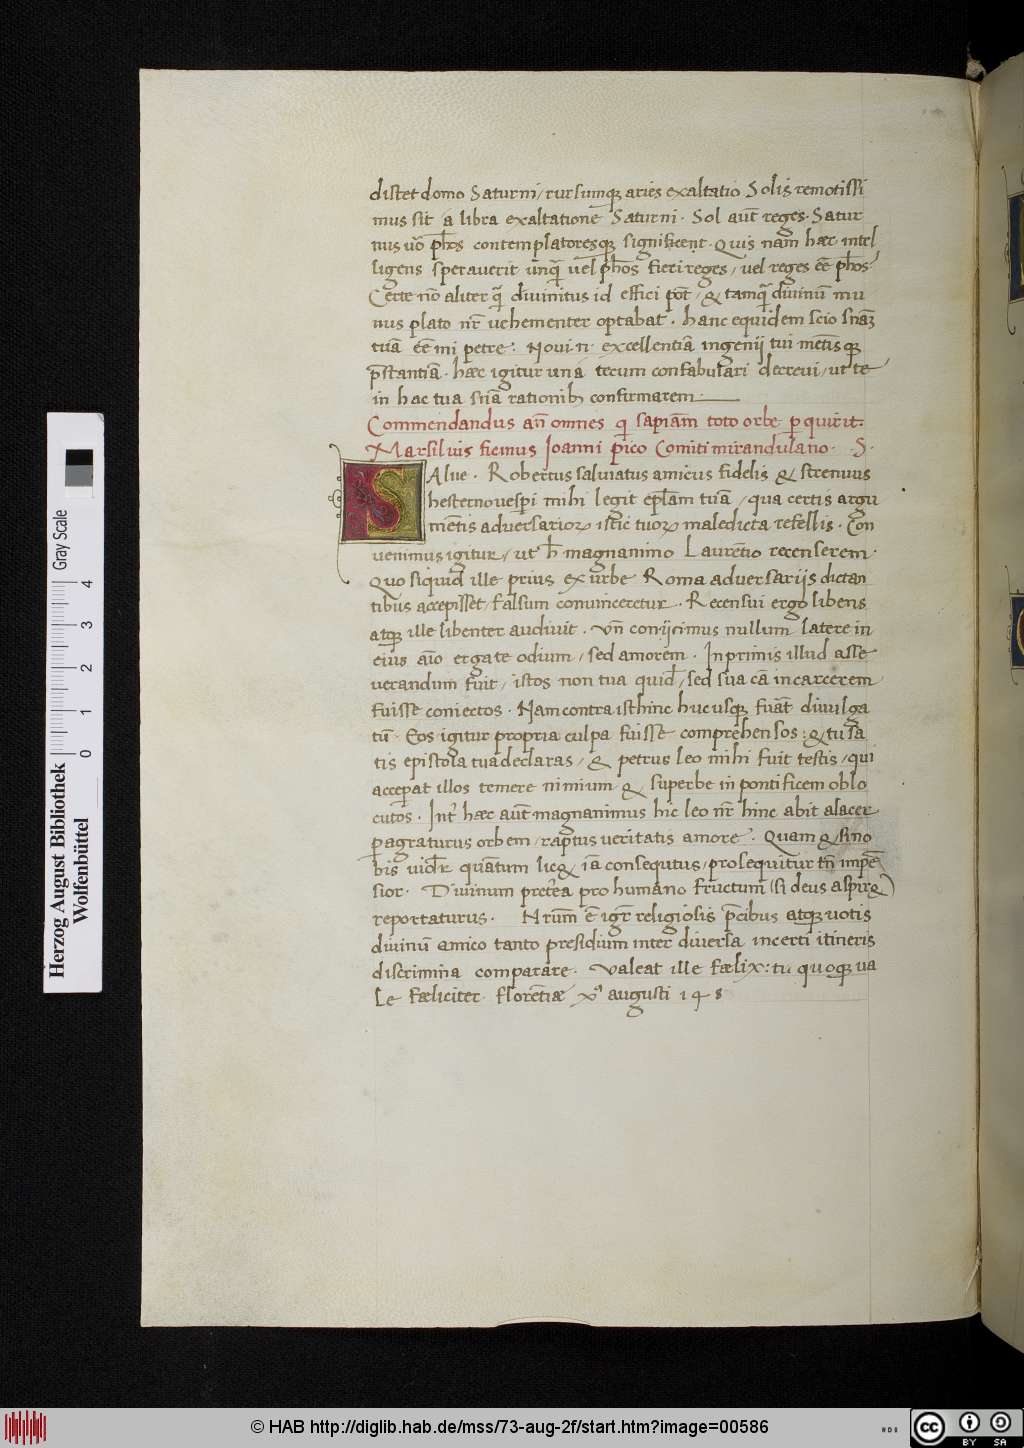 distet domo Saturni / rursumq; aries exaltatio Solis remotissi
mus sit a libra exaltatione Saturni. Sol aut̄ reges. Satur
nus u͞o ph̄os contemplatoresq; significent. Quis nam hæc intel
ligens sperauerit unq̄ uel ph̄os fieri reges / uel reges eē ph̄os
Certe nō aliter q̄ diuinitus id effici pōt / & tamq̄ diuinū mu
nus plato nr̄ uehementer optabat. hanc equidem scio sn̄iaz
tuā eē mi petre. Noui .n. excellentiā ingenij tui mētisq;
p̄stantiā. hæc igitur una tecum confabulari decreui / ut te
in hac tua sn̄ia rationib; confirmarem.
Commendandus an̄ omnes q̄ sapiam̄ toto orbe pquirit.
Marsilius ficinus Ioanni pico Comiti mirandulano. S.
SAlue. Robertus saluiatus amicus fidelis & strenuus
hesterno uesperi mihi legit ep̄lam tuā / qua certis argu
mētis aduersarioꝝ istic tuoꝝ maledicta refellis. Con
uenimus igitur / ut h̄ magnanimo Laurētio recenserem.
Quo siquid ille prius ex urbe Roma aduersarijs dictan
tibus accepisset / falsum conuinceretur. Recensui ergo libens
atq; ille libenter audiuit. Vn̄ conijcimus nullum latere in
eius aīo erga te odium / sed amorem. In primis illud asse
uerandum fuit / istos non tua quid̄ / sed sua cā in carcerem
fuisse coniectos. Nam contra isthinc hucusq; fuāt diuulga
tū. Eos igitur propria culpa fuisse comprehensos: & tu sa
tis epistola tua declaras / & petrus leo mihi fuit testis / qui
acceperat illos temere nimium & superbe in pontificem oblo
cutos. Int̄ hæc aut̄ magnanimus hic leo nr̄ hinc abit alacer
pagraturus orbem / raptus ueritatis amore. Quam & si no
bis uid̄r quātum lic& iā consequtus / prosequitur tn̄ impē
sior. Diuinum pret̄ea pro humano fructum (si deus aspir&)
reportaturus. Nr̄um ē igr̄ religiosis p̄cibus atq; uotis
diuinū amico tanto presidium inter diuersa incerti itineris
discrimina comparare. Valeat ille fælix: tu quoq; ua
le fæliciter. florētiæ xv augusti 148
Herzog August Bibliothek
Wolfenbüttel
0 1 2 3 4
Gray Scale
© HAB http://diglib.hab.de/mss/73-aug-2f/start.htm?image=00586
HAB
cc BY SA